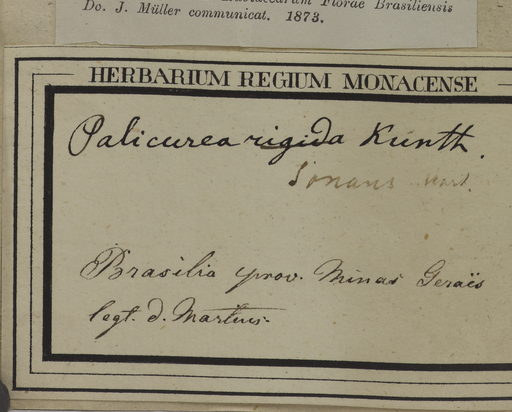 Florae Brasiliensis
Do. J. Müller communicat. 1873.
HERBARIUM REGIUM MONACENSE
Palicurea rigida Kunth.
Sonans Mart.
Brasilia prov. Minas Geraës
legt. d. Martius.